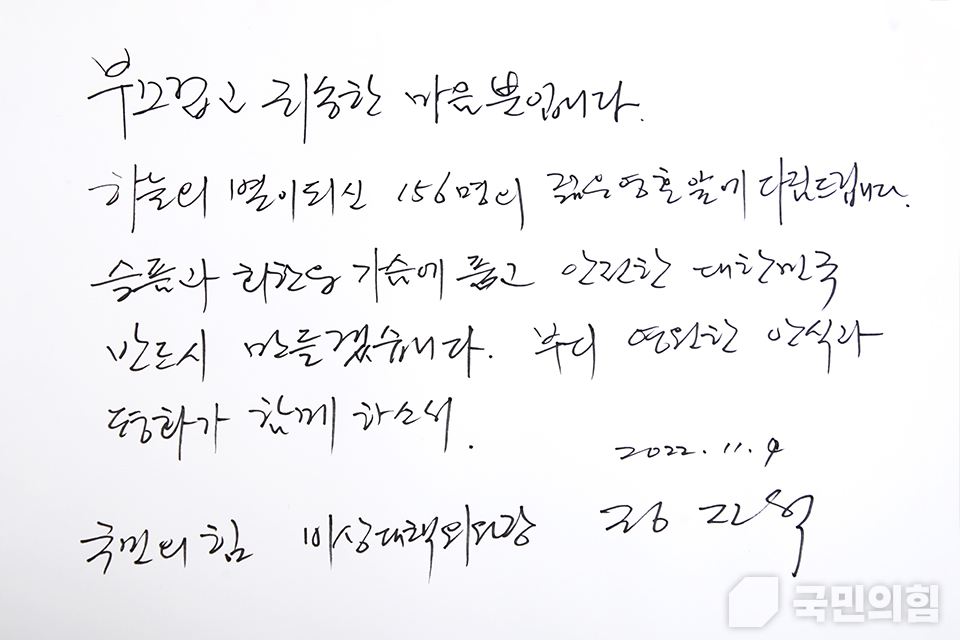 부끄럽고 죄송한 마음뿐입니다.
하늘의 별이되신 156명의 젊은영혼앞에 다짐드립니다.
슬픔과 회한을 가슴에 품고 안전한 대한민국
반드시 만들겠습니다. 부디 영원한 안식과
평화가 함께 하소서.
2022. 11. 4
국민의힘 비상대책위원장 정진석
국민의힘